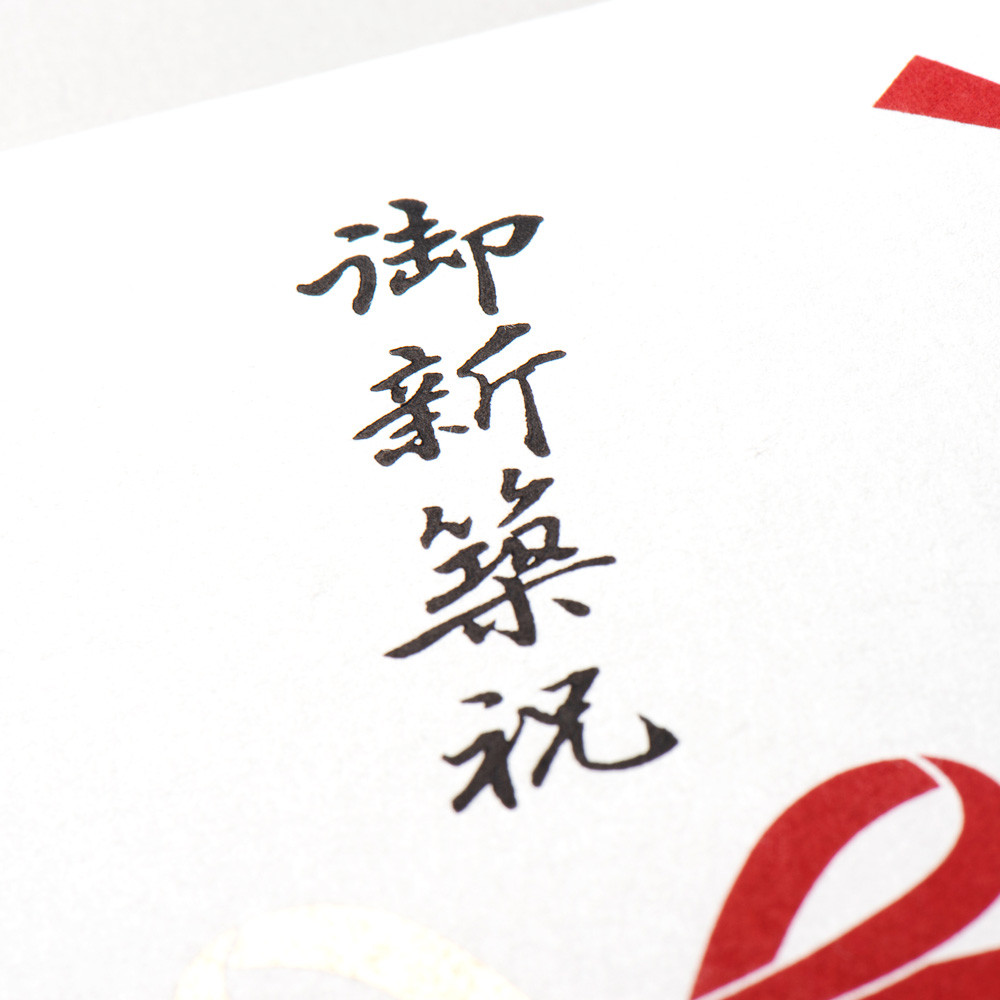 御新築祝